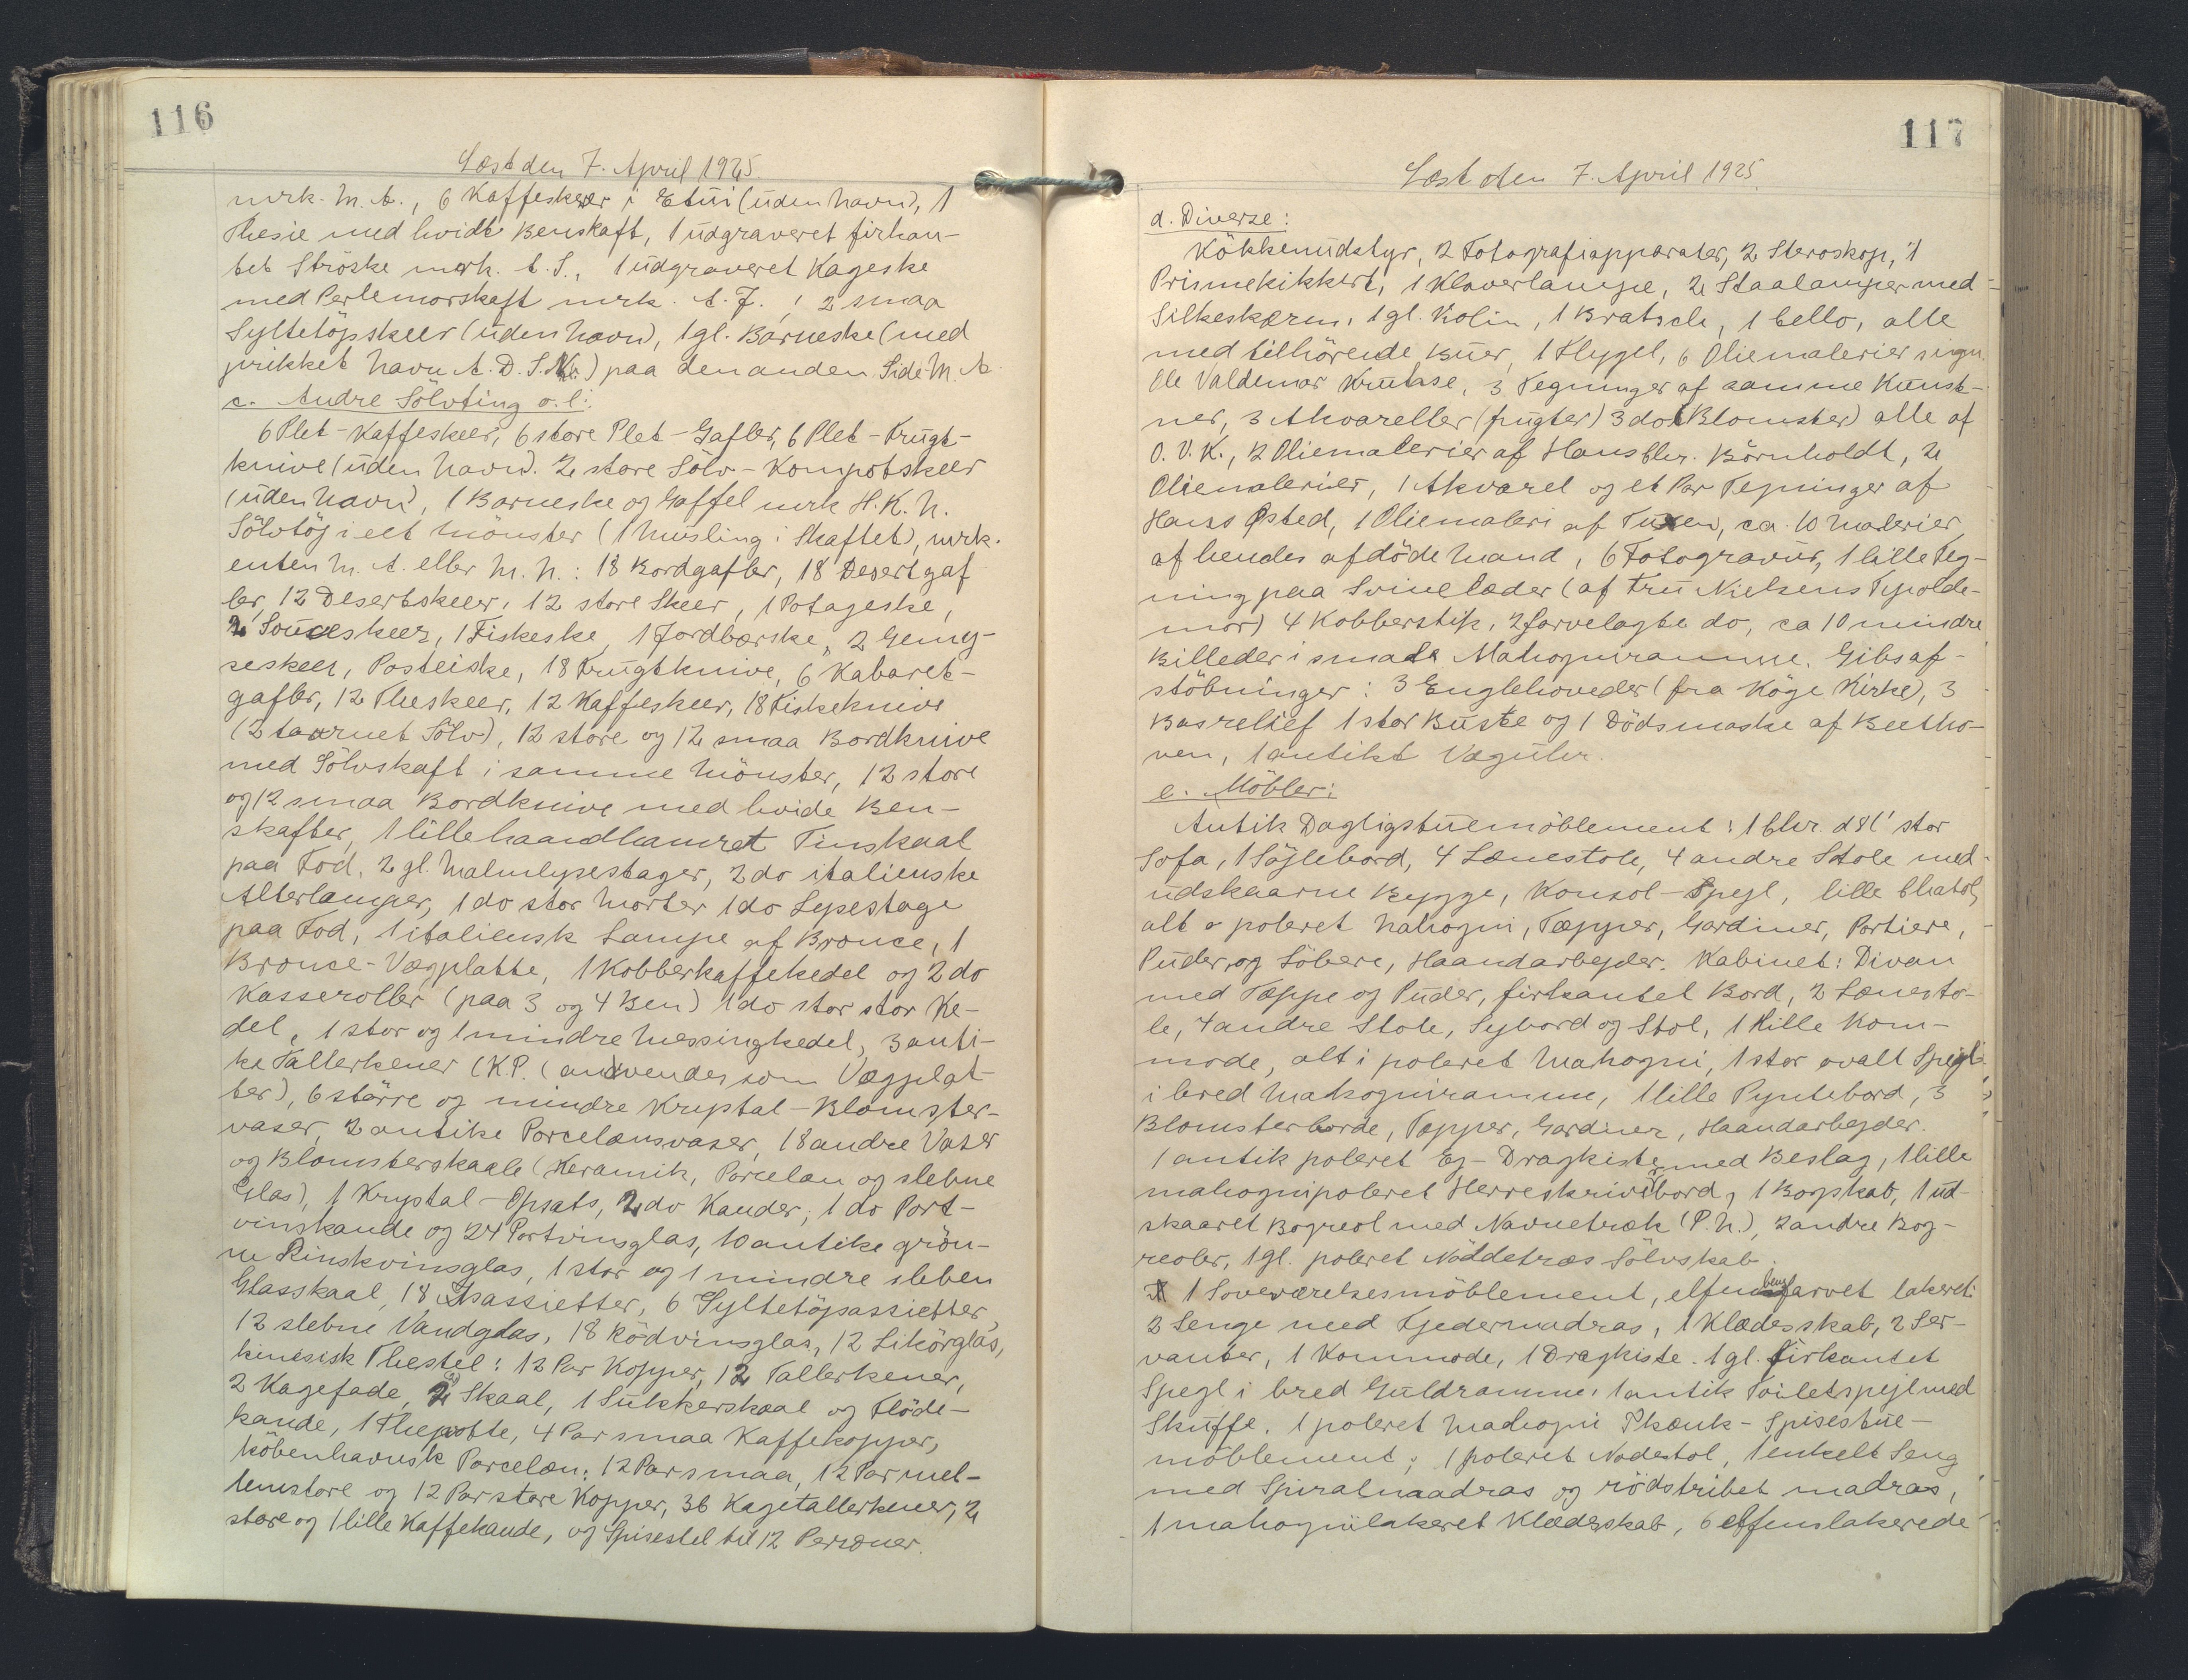 116
Læst den 7. April 1925.
mrk. M. A., 6 Kaffeskeer i Etui (uden Navn), 1
Thesie med hvidt Benskaft, 1 udgraveret firkan-
tet Ströske mrk. C. S., 1 udgraveret Kageske
med Perlemorskaft mrk. A. J., 2 smaa
Syltetöjskeer (uden Navn), 1 gl. Barneske (med
prikket Navn A. D. S. Kr.) paa den anden Side M. A.
c. Andre Sölvting o. l:
6 Plet-Kaffeskeer, 6 store Plet-Gafler, 6 Plet-Frugt-
knive (uden Navn). 2 store Sölv-Kompotskeer
(uden Navn), 1 Barneske og Gaffel mrk H. K. N.
Sölvtöj i eet Mönster (1 Musling i Skaftet), mrk.
enten M. A. eller M. N.: 18 Bordgafler, 18 Desertgaf
ler, 12 Desertskeer, 12 store Skeer, 1 Potageske,
2 Souceskeer, 1 Fiskeske, 1 Jordbærske, 2 Gemy-
seskeer, Posteiske, 18 Frugtknive, 6 Kabaret-
gafler, 12 Theskeer, 12 Kaffeskeer, 18 Fiskeknive
(2 taarnet Sölv), 12 store og 12 smaa Bordknive
med Sölvskaft i samme Mönster, 12 store
og 12 smaa Bordknive med hvide Ben-
skafter, 1 lille haandhamret Tinskaal
paa Fod, 2 gl. Malmlysestager, 2 do italienske
Alterlamper, 1 do stor Morter 1 do Lysestage
paa Fod, 1 italiensk Lampe af Bronce, 1
Bronce-Vægplatte, 1 Kobberkaffekedel og 2 do
Kasseroller (paa 3 og 4 Ben) 1 do stor stor Ke-
del, 1 stor og 1 mindre Messingkedel, 3 anti-
ke Tallerkener (K.P. (anvendes som Vægplat-
ter), 6 större og mindre Krystal-Blomster-
vaser, 2 antike Porcelænsvaser, 18 andre Vaser
og Blomsterskaale (Keramik, Porcelan og slebne
Glas), 1 Krystal-Opsats, 2 do Kander, 1 do Port-
vinskande og 24 Portvinsglas, 10 antike grön-
ne Rinskvinsglas, 1 stor og 1 mindre sleben
Glasskaal, 18 Assietter, 6 Syltetöjsassietter,
12 slebne Vandglas, 18 Rödvinsglas, 12 Likörglas,
kinesisk Thestel: 12 Par Kopper, 12 Tallerkener,
2 Kagefade, 2 Skaal, 1 Sukkerskaal og Flöde-
kande, 1 Thepotte, 4 Par smaa Kaffekopper,
köbenhavnsk Porcelæn: 12 Par smaa, 12 Par mel-
lemstore og 12 Par store Kopper, 36 Kagetallerkener, 2
store og 1 lille Kaffekande, og Spisestel til 12 Personer.
117
Læst den 7. April 1925.
d. Diverse:
Kökkenudstyr, 2 Fotografiapparater, 2 Steroskop, 1
Prismekikkert, 1 Klaverlampe, 2 Staalamper med
Silkeskærm, 1 gl. Violin, 1 Bratsch, 1 Cello, alle
med tilhörende Buer, 1 Flygel, 6 Oliemalerier sign.
Ole Valdemar Kruhse, 3 Tegninger af samme Kunst-
ner, 3 Akvareller (frugter) 3 do (Blomster) alle af
O. V. K., 2 Oliemalerier af Hans Chr. Börnholdt, 2
Oliemalerier, 1 Akvarel og et Par Tegninger af
Hans Østed, 1 Oliemaleri af Tuxen, ca. 10 Malerier
af hendes afdöde Mand, 6 Fotogravur, 1 lille Teg-
ning paa Svinelæder (af Fru Nielsens Typolde-
mor) 4 Kobberstik, 2 farvelagte do, ca 10 mindre
Billeder i smaa Mahogniramme. Gibsaf-
stöbninger: 3 Englehoveder (fra Köge Kirke), 3
Basrelief 1 stor Buste og 1 Dödsmaske af Beetho-
ven, 1 antikt Væguhr.
e. Möbler:
Antik Dagligstuemöblement: 1 Chr. d 8&#x27; stor
Sofa, 1 Söjlebord, 4 Lænestole, 4 andre Stole med
udskaarne Rygge, Konsol-Spejl, lille Chatol,
alt o poleret Mahogni, Tæpper, Gardiner, Portiere,
Puder, og Löbere, Haandarbejder. Kabinet: Divan
med Tæppe og Puder, firkantet Bord, 2 Lænesto-
le, 4 andre Stole, Sybord og Stol, 1 lille Kom-
mode, alt i poleret Mahogni, 1 stor ovalt Spejl
i bred Mahogniramme, 1 lille Pyntebord, 3
Blomsterborde, Tæpper, Gardiner, Haandarbejder.
1 antik poleret Eg-Dragkiste med Beslag, 1 lille
mahognipoleret Herreskrivebord, 1 Bogskab, 1 ud-
skaaret Bogreol med Navnetræk (P. N.), 2 andre Bog-
reoler, 1 gl. poleret Nöddetræs Sölvskab.
1 Soveværelsesmöblement, elfenbensfarvet lakeret:
2 Senge med Fjedermadras, 1 Klædesskab, 2 Ser-
vanter, 1 Kommode, 1 Dragkiste. 1 gl. firkantet
Spegl i bred Guldramme, 1 antik Toiletspejl med
Skuffe. 1 poleret Mahogni Skænk-Spisestue-
möblement; 1 poleret Nodestol, 1 enkelt Seng
med Spiralmaadras og rödstribet madras,
1 mahognilakeret Klædeskab, 6 elfenslakerede